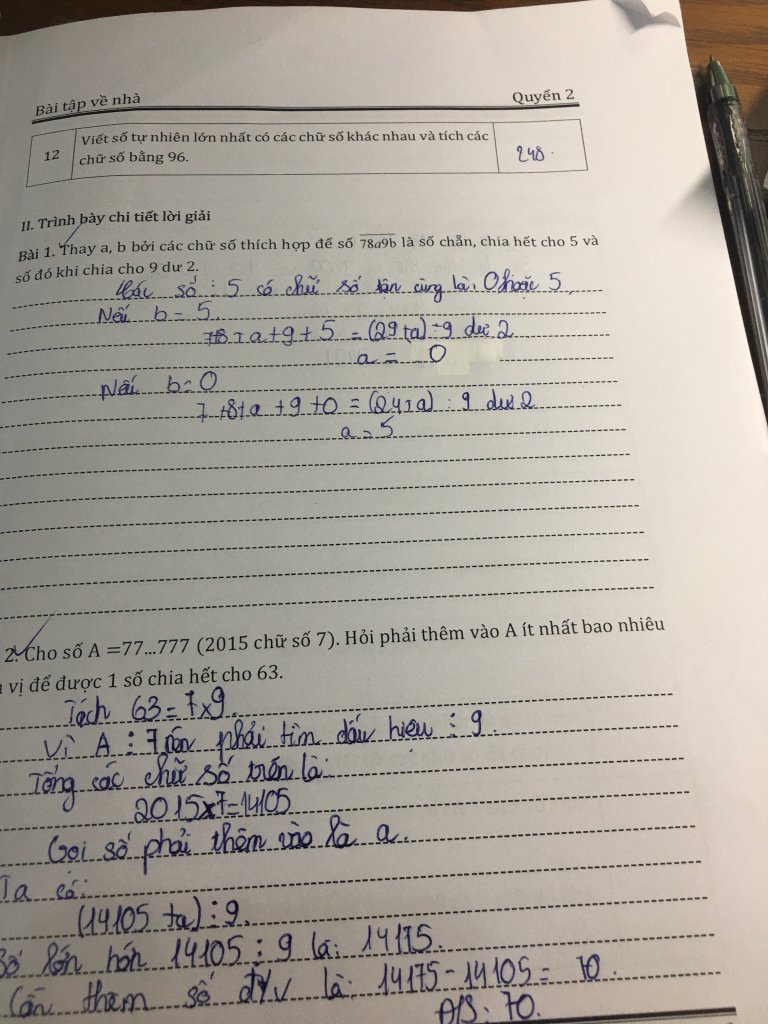 Bài tập về nhà
Quyển 2
12
Viết số tự nhiên lớn nhất có các chữ số khác nhau và tích các
chữ số bằng 96.
248.
II. Trình bày chi tiết lời giải
Bài 1. Thay a, b bởi các chữ số thích hợp để số 78a9b là số chẵn, chia hết cho 5 và
số đó khi chia cho 9 dư 2.
Các số ⋮ 5 có chữ số tận cùng là: 0 hoặc 5.
Nếu b = 5.
7+8+a+9+5 = (29+a) ÷ 9 dư 2
a = 0
Nếu b = 0
7+8+a+9+0 = (24+a) : 9 dư 2
a = 5
2. Cho số A =77...777 (2015 chữ số 7). Hỏi phải thêm vào A ít nhất bao nhiêu
vị để được 1 số chia hết cho 63.
Tách 63 = 7x9.
Vì A ⋮ 7 nên phải tìm dấu hiệu ⋮ 9.
Tổng các chữ số trên là:
2015x7=14105
Gọi số phải thêm vào là a.
Ta có:
(14105 +a) ⋮ 9.
Số lớn hơn 14105 ⋮ 9 là: 14175.
Cần thêm số đ/v là: 14175-14105 = 70.
Đ/S: 70.